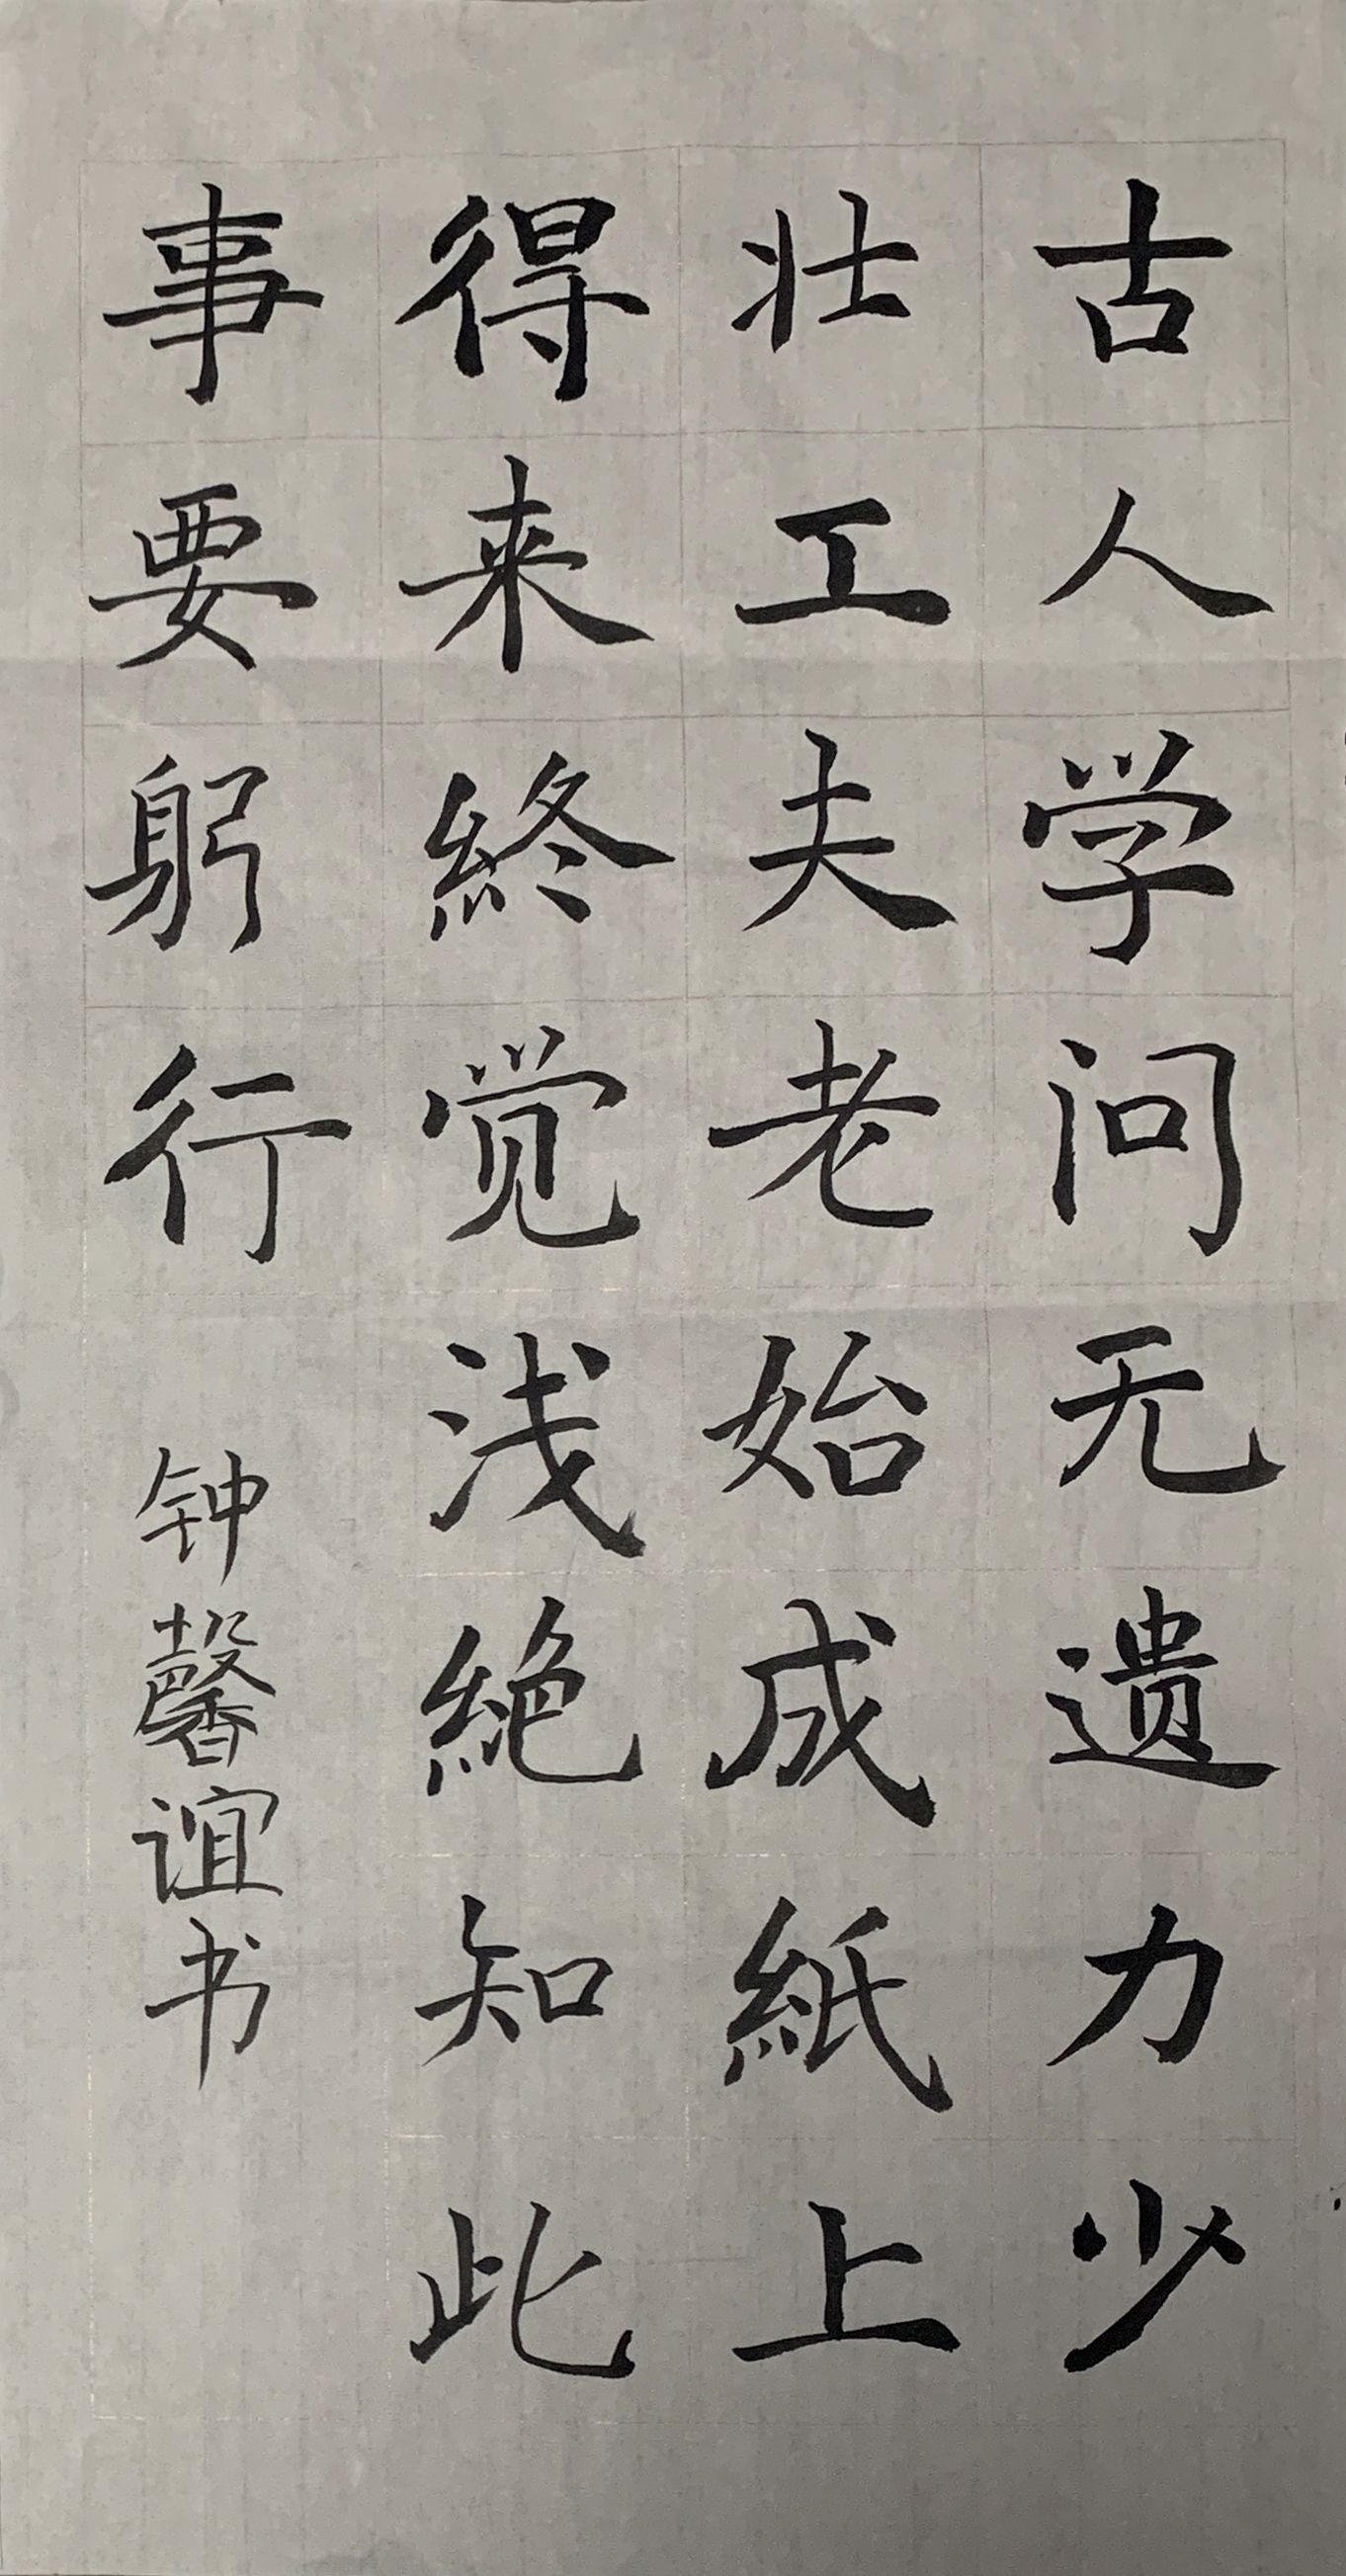 古人学问无遗力少
壮工夫老始成紙上
得来終觉浅絶知此
事要躬行
钟馨谊书